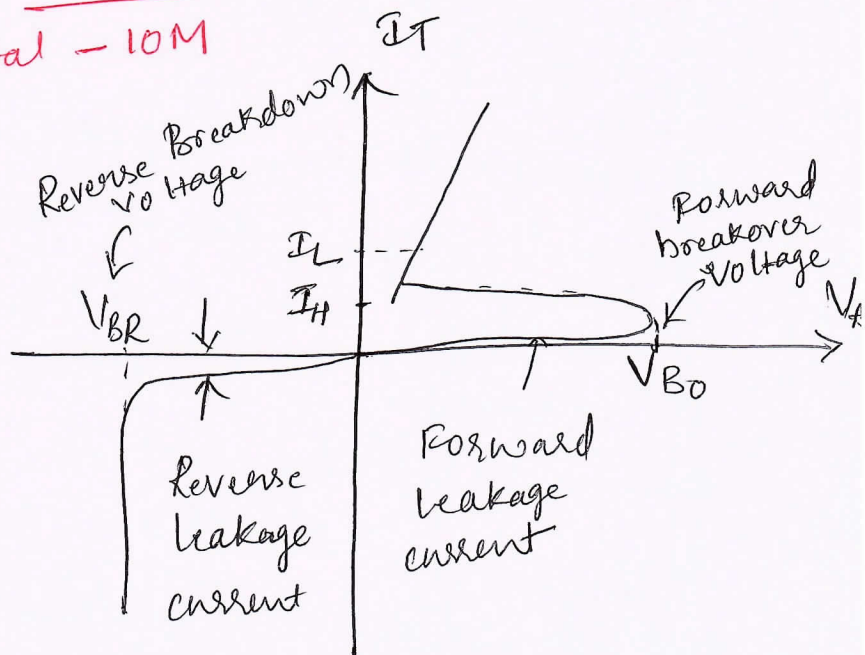 al - 10M
I_T
Reverse Breakdown
voltage
V_BR
I_L
I_H
Forward
breakover
Voltage
V_t
V_BO
Reverse
leakage
current
Forward
leakage
current